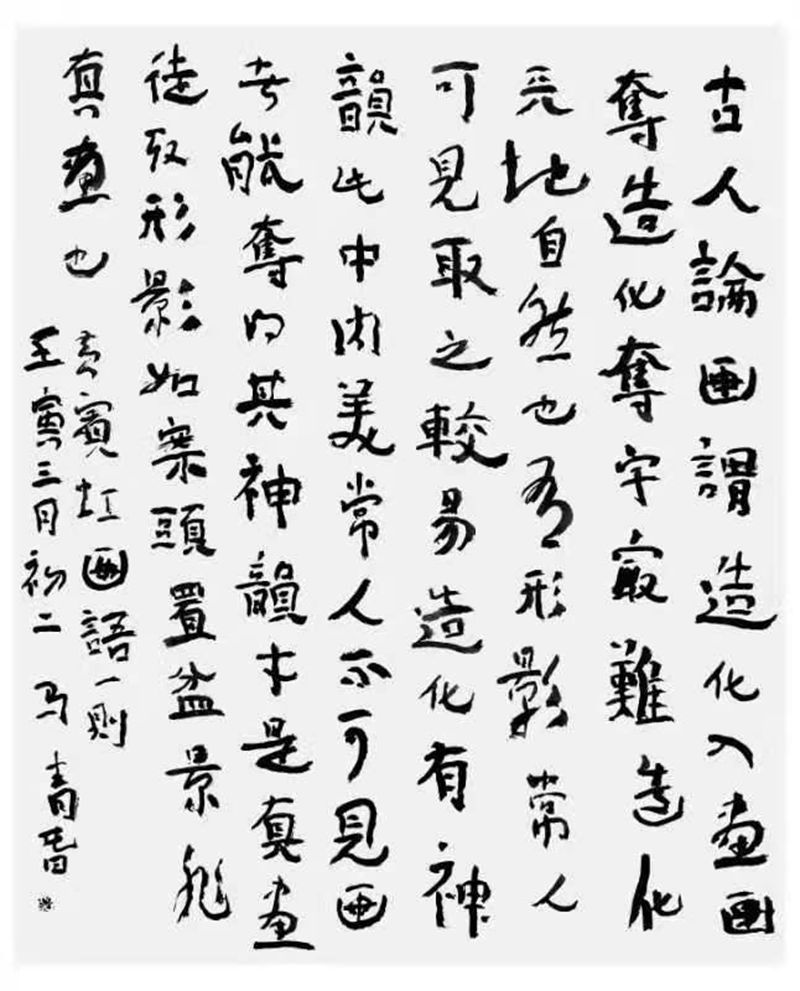 古人論画謂造化入畫画
奪造化奪字㝡難造化
天地自然也有形影常人
可見取之較易造化有神
韻此中内美常人不可見画
者能奪得其神韻才是真畫
徒取形影如案頭置盆景非
真畫也
黃賓虹画語一則
壬寅三月初二 马青旾